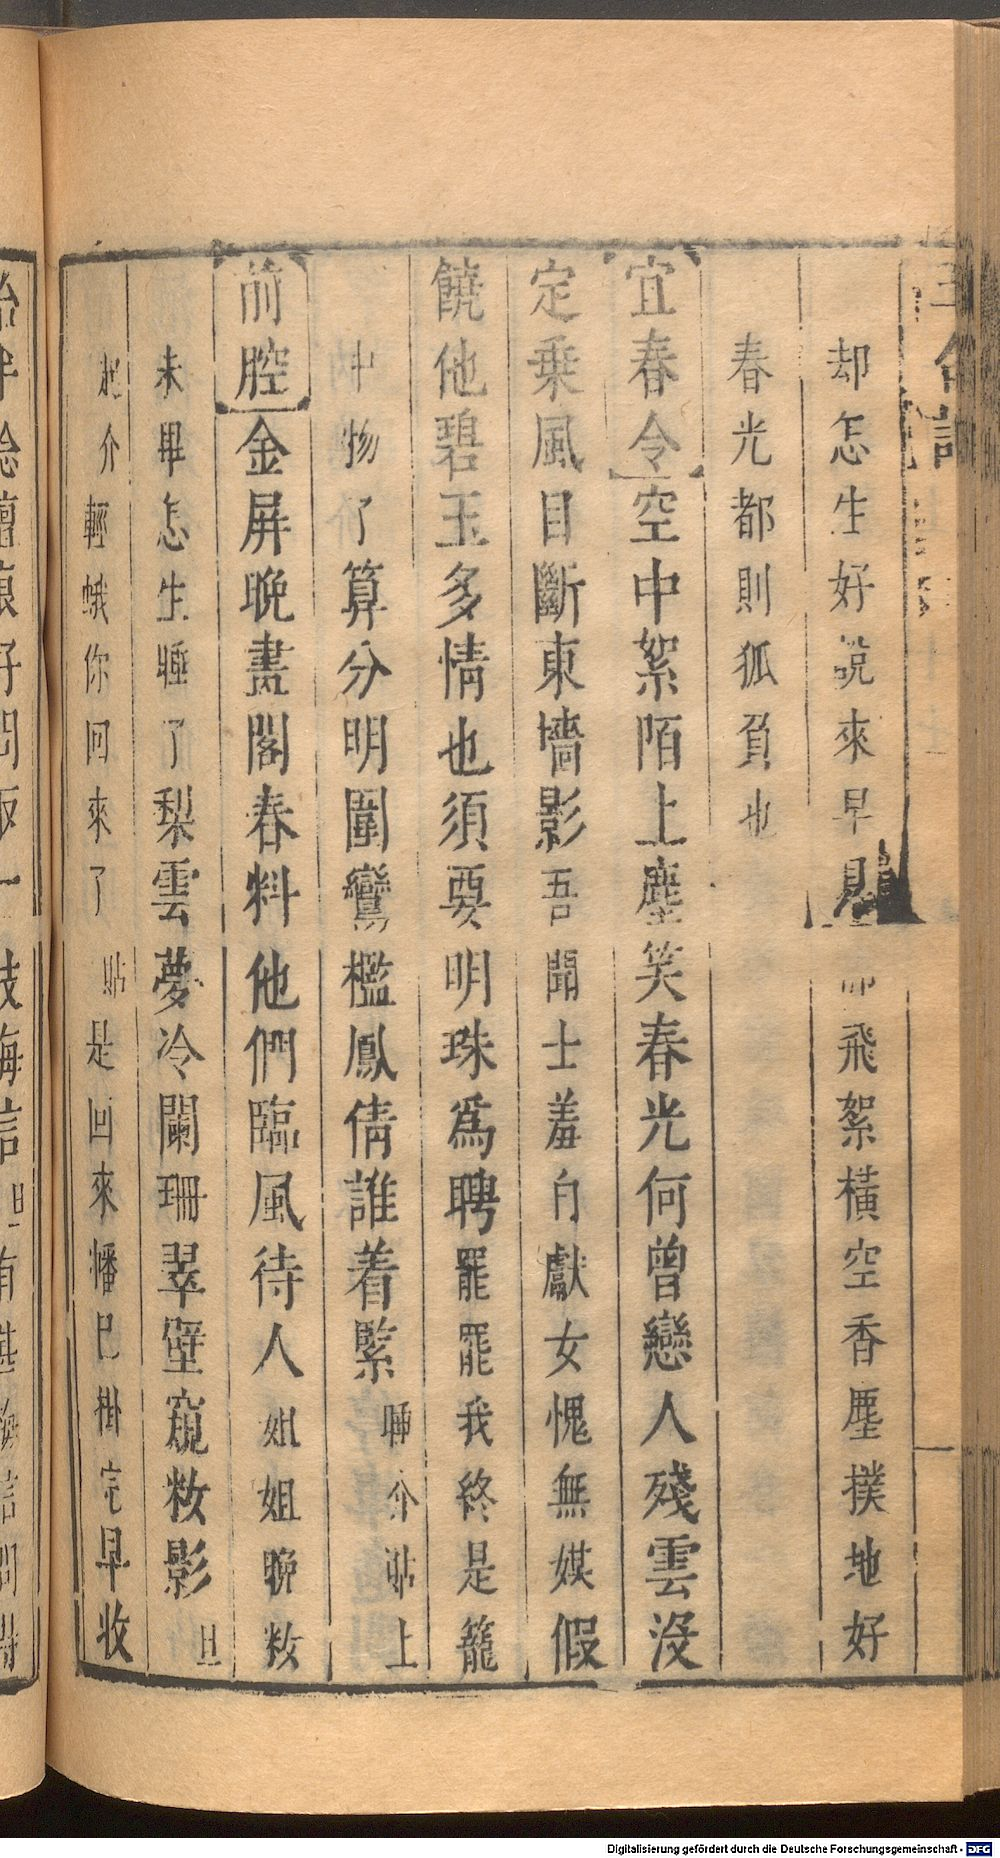 却怎生好說來早見 飛絮橫空香塵撲地好
春光都則狐負也
宜春令空中絮陌上塵笑春光何曾戀人殘雲沒
定乘風目斷東墻影吾聞士羞自獻女愧無媒假
饒他碧玉多情也須要明珠爲聘罷罷我終是籠
中物了算分明圍鸞檻鳳倩誰着緊睡介貼上
前腔金屏晚畫閣春料他們臨風待人姐姐晚妝
未畢怎生睡了梨雲夢冷闌珊翠壁窺妝影旦
起介輕蛾你回來了貼是回來幡已掛完早收
Digitalisierung gefördert durch die Deutsche Forschungsgemeinschaft - DFG